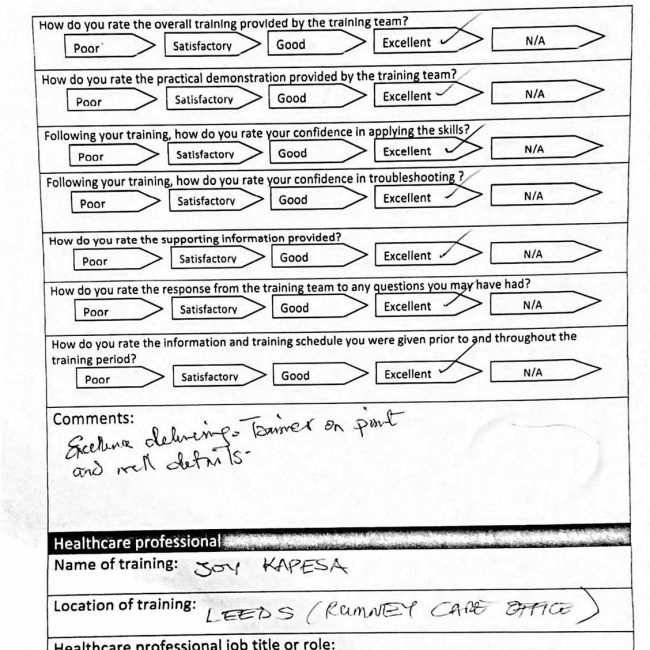 How do you rate the overall training provided by the training team?
Poor Satisfactory Good Excellent N/A
How do you rate the practical demonstration provided by the training team?
Poor Satisfactory Good Excellent N/A
Following your training, how do you rate your confidence in applying the skills?
Poor Satisfactory Good Excellent N/A
Following your training, how do you rate your confidence in troubleshooting ?
Poor Satisfactory Good Excellent N/A
How do you rate the supporting information provided?
Poor Satisfactory Good Excellent N/A
How do you rate the response from the training team to any questions you may have had?
Poor Satisfactory Good Excellent N/A
How do you rate the information and training schedule you were given prior to and throughout the
training period?
Poor Satisfactory Good Excellent N/A
Comments:
Excellence delivering. Trainer on point
and well details-
Healthcare professional
Name of training: JOY KAPESA
Location of training: LEEDS (RUMNEY CARE OFFICE)
Healthcare professional job title or role: